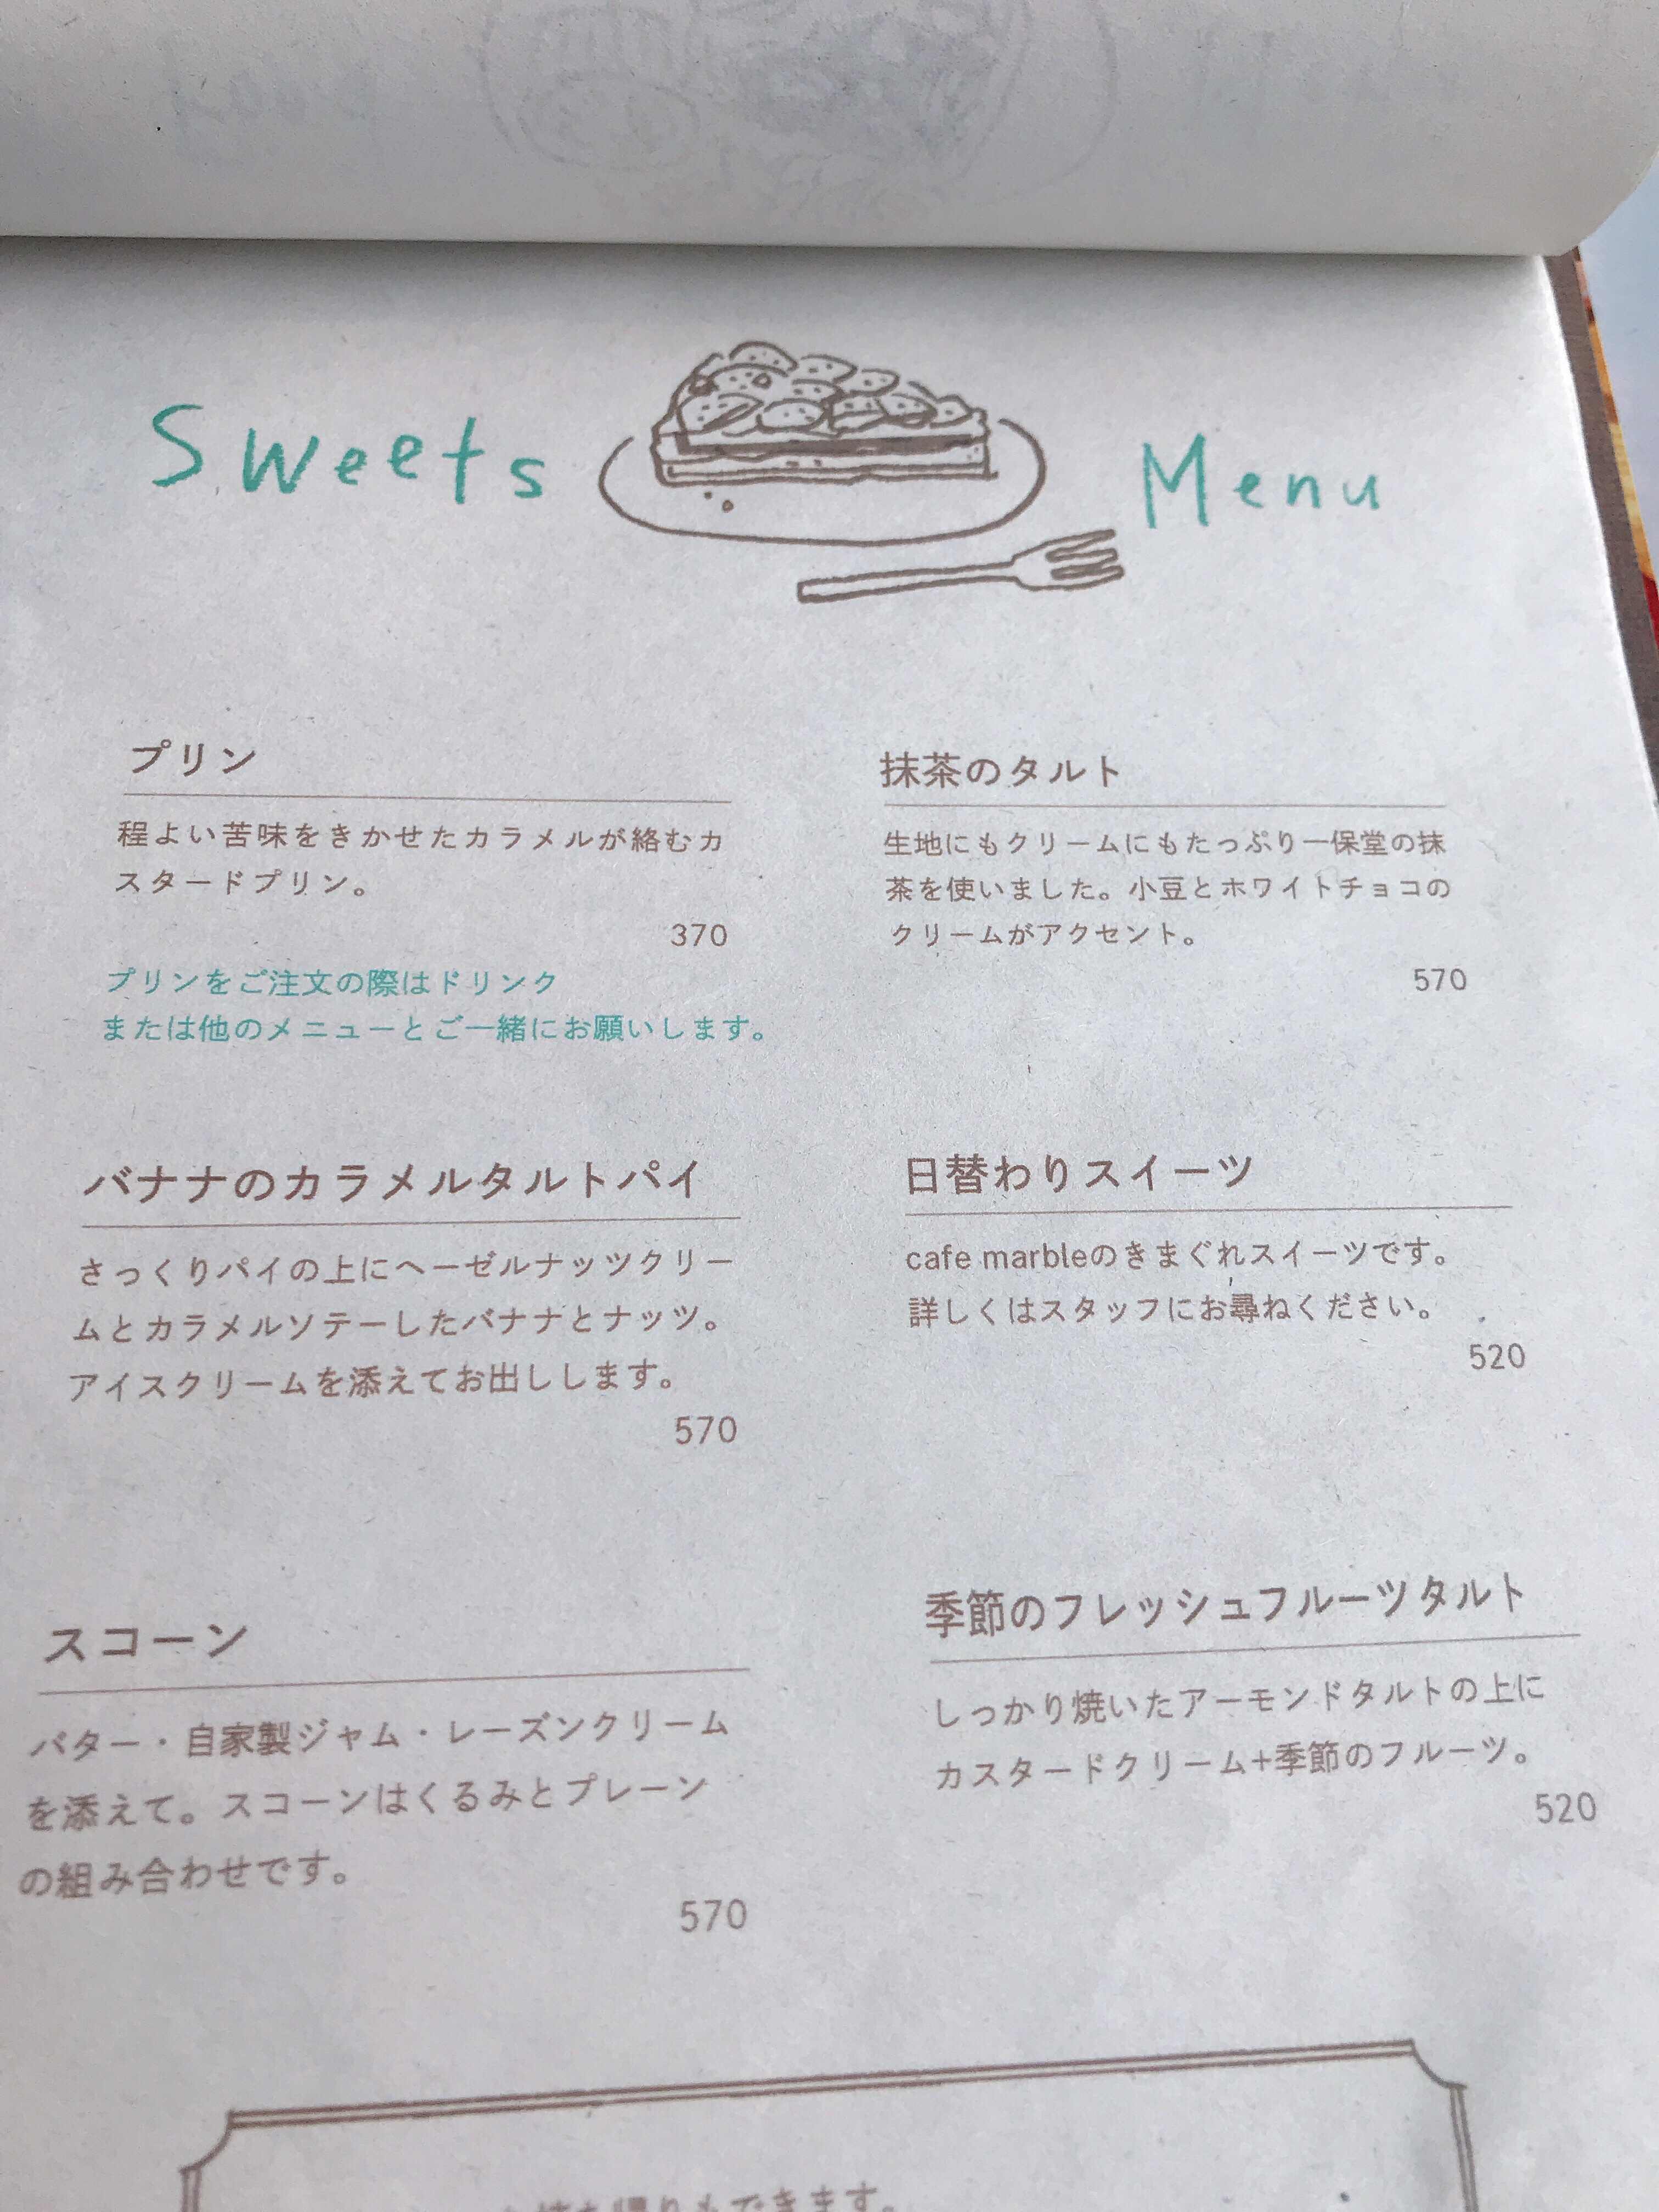 Sweets Menu
プリン
程よい苦味をきかせたカラメルが絡むカ
スタードプリン。
370
プリンをご注文の際はドリンク
または他のメニューとご一緒にお願いします。
抹茶のタルト
生地にもクリームにもたっぷり一保堂の抹
茶を使いました。小豆とホワイトチョコの
クリームがアクセント。
570
バナナのカラメルタルトパイ
さっくりパイの上にヘーゼルナッツクリー
ムとカラメルソテーしたバナナとナッツ。
アイスクリームを添えてお出しします。
570
日替わりスイーツ
cafe marbleのきまぐれスイーツです。
詳しくはスタッフにお尋ねください。
520
スコーン
バター・自家製ジャム・レーズンクリーム
を添えて。スコーンはくるみとプレーン
の組み合わせです。
570
季節のフレッシュフルーツタルト
しっかり焼いたアーモンドタルトの上に
カスタードクリーム+季節のフルーツ。
520
帰りもできます。